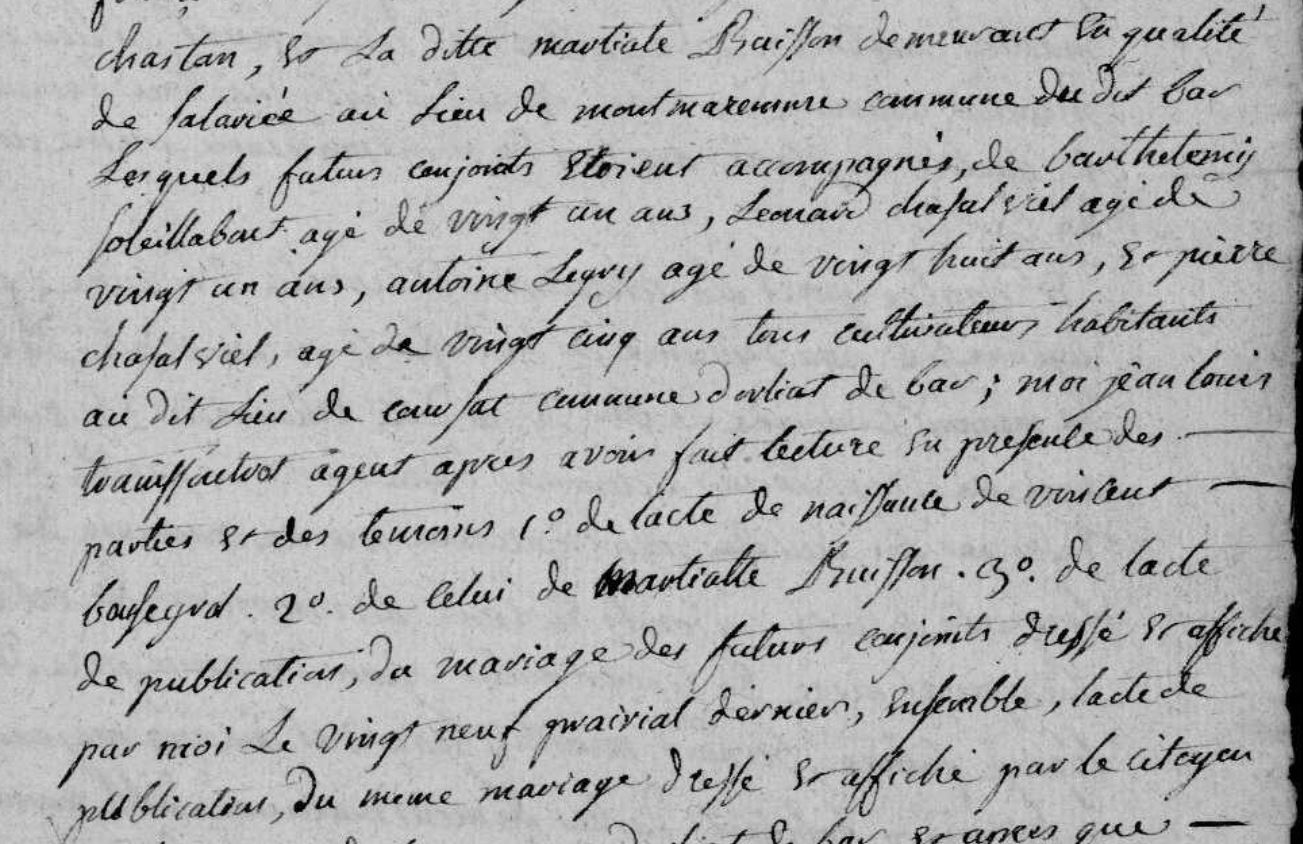 chastan, et La ditte martiale Buisson demeurant en qualité
de salariée au Lieu de montmaremure commune du dit bar
Lesquels futurs conjoints etoient accompagnés, de barthelemy
soleillabout agé de vingt un ans, Leonard chasalviel agé de
vingt un ans, antoine Legry agé de vingt huit ans, et pierre
chasalviel, agé de vingt cinq ans tous cultivateurs habitants
au dit Lieu de coursat commune dorliat de bar; moi jean louis
agent apres avoir fait lecture en presence des
parties et des temoins 1º. de lacte de naissance de vincent
bossegrol. 2º. de celui de Martialle Buisson. 3º. de lacte
de publication, du mariage des futurs conjoints dressé et affiché
par moi Le vingt neuf prairial dernier, ensemble, lacte de
publication, du meme mariage dressé et affiché par le citoyen
de bar et apres que